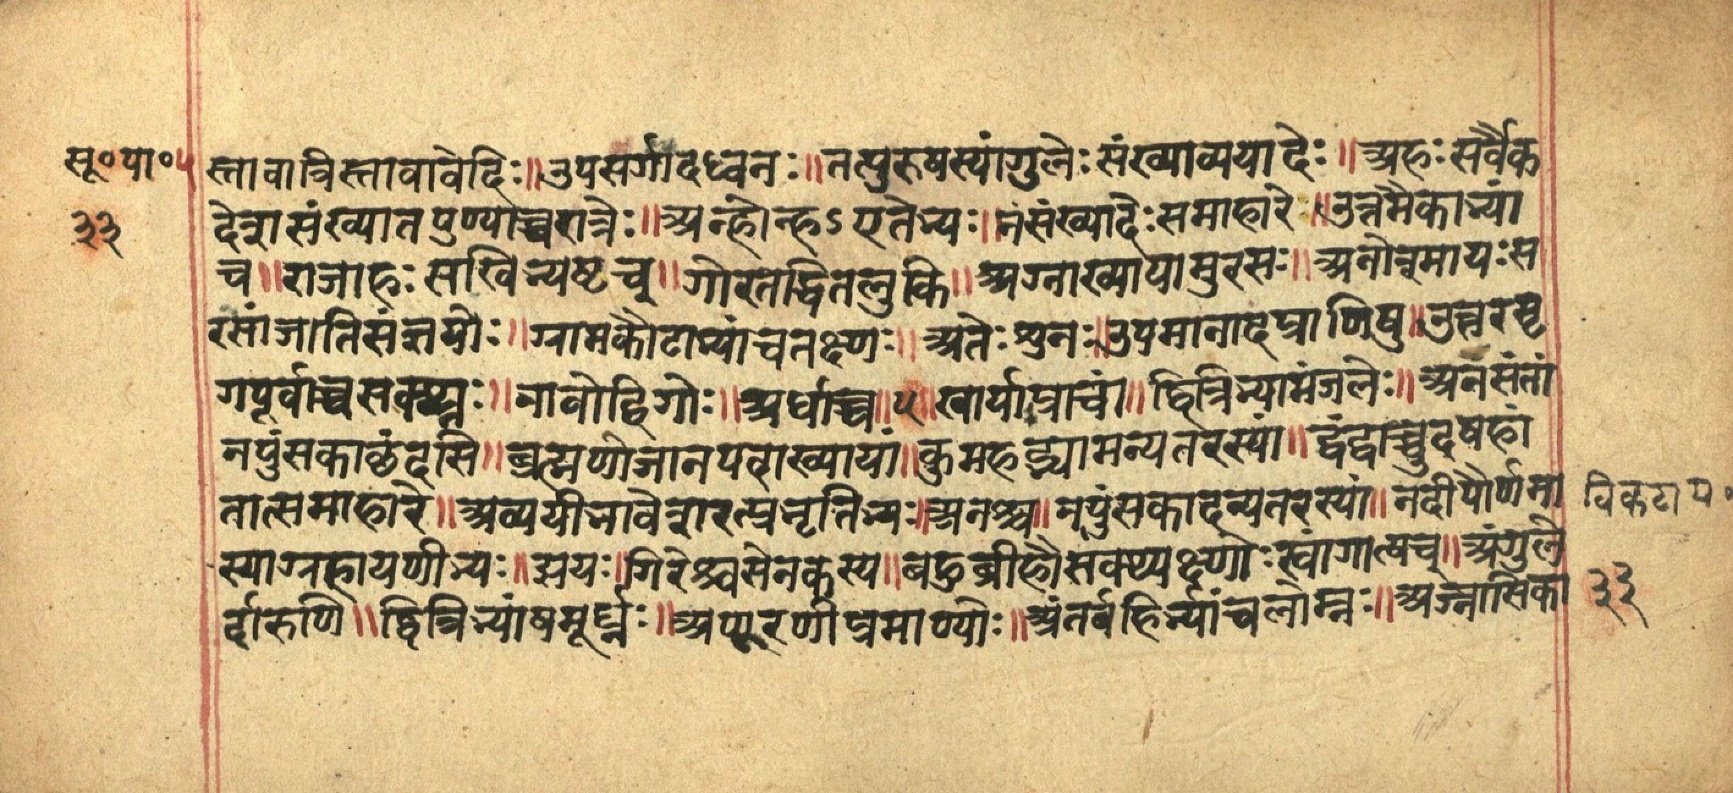 सू०पा०५
३३
स्तावात्रिस्तावावेदिः॥उपसर्गादध्वनः॥तत्पुरुषस्यांगुलेः संख्याव्ययादेः॥अहः सर्वैक
देशसंख्यातपुण्याच्चरात्रेः॥अन्होन्हऽएतेभ्यः॥नसंख्यादेः समाहारे॥उत्तमैकाभ्यां
च॥राजाहः सखिभ्यष्टच्॥गोरतद्धितलुकि॥अग्नाख्यायामुरसः॥अनोश्मायः स
रसांजातिसंज्ञयोः॥ग्रामकौटाभ्यांचतक्ष्णः॥अतेः शुनः॥उपमानादप्राणिषु॥उत्तरमृ
गपूर्वाच्चसक्थ्नः॥नावोद्विगोः॥अर्धाच्च॥५॥खार्याप्राचां॥द्वित्रिभ्यामंजलेः॥अनसंतां
नपुंसकाछंदसि॥ब्रह्मणोजानपदाख्यायां॥कुमहद्भ्यामन्यतरस्यां॥द्वंद्वाच्चुदषहां
तात्समाहारे॥अव्ययीभावेशरत्प्रभृतिभ्यः॥अनश्च॥नपुंसकादन्यतरस्यां॥नदीपौर्णमा
स्याग्रहायणीभ्यः॥झयः॥गिरेश्चसेनकस्य॥बहुव्रीहौसक्थ्यक्ष्णोः स्वांगात्षच्॥अंगुले
र्दारुणि॥द्वित्रिभ्यांषमूर्ध्नः॥अप्पूरणीप्रमाण्योः॥अंतर्बहिर्भ्यांचलोम्नः॥अञ्नासिका
३३